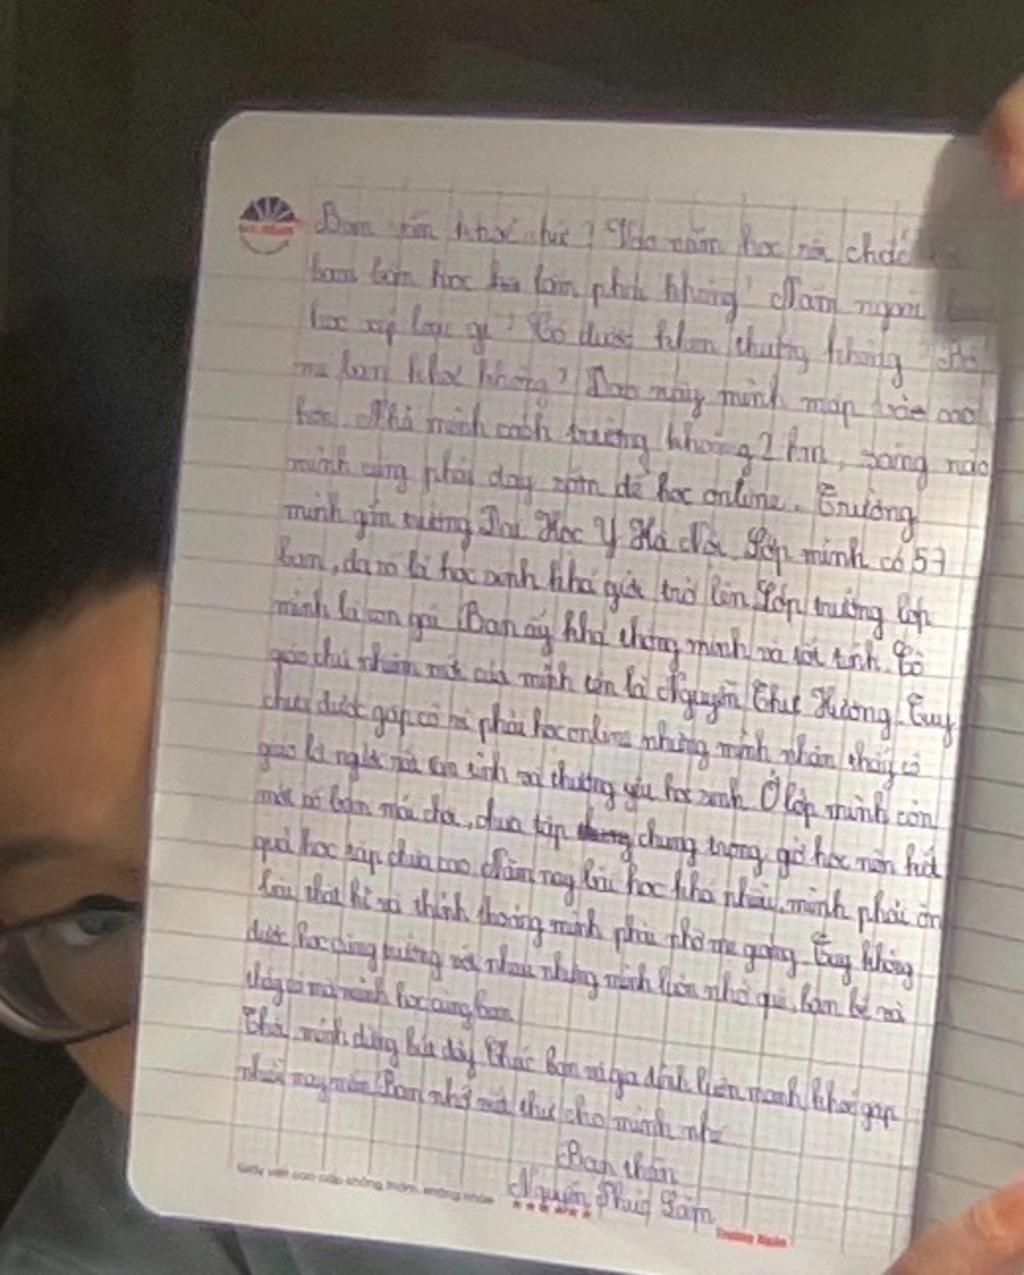 Bạn vẫn khoẻ chứ? Vào năm học rồi chắc
bạn bận học lắm phải không? Năm ngoái
học xếp loại gì? Có được khen thưởng không? Bố
mẹ bạn khoẻ không? Dạo này mình mập và cao
hơn. Nhà mình cách trường khoảng 2 km, sáng nào
mình cũng phải dậy sớm để học online. Trường
mình gần trường Đại Học Y Hà Nội. Lớp mình có 57
bạn, đa số là học sinh khá giỏi trở lên. Lớp trưởng lớp
mình là con gái. Bạn ấy khá thông minh và rất tính. Cô
giáo chủ nhiệm mới của mình tên là Nguyễn Thu Hương. Tuy
chưa được gặp cô vì phải học online nhưng mình nhận thấy cô
giáo là người rất tân tình và thương yêu học sinh. Ở lớp mình còn
một số bạn mải chơi, chưa tập chung trong giờ học nên kết
quả học tập chưa cao. Năm nay bài học khá nhiều, mình phải ôn
bài thật kĩ và thỉnh thoảng mình phải nhờ mẹ giảng. Tuy không
được học cùng trường với nhau nhưng mình luôn nhớ quê, bạn bè và
thầy cô mà mình học cùng bạn.
Thôi, mình dừng bút đây. Chúc bạn và gia đình luôn mạnh khoẻ gặp
nhiều may mắn. Bạn nhớ viết thư cho mình nhé
Bạn thân
Nguyễn Phúc Lâm
Giấy viết cao cấp không thấm, không nhòe
Trường Ngân